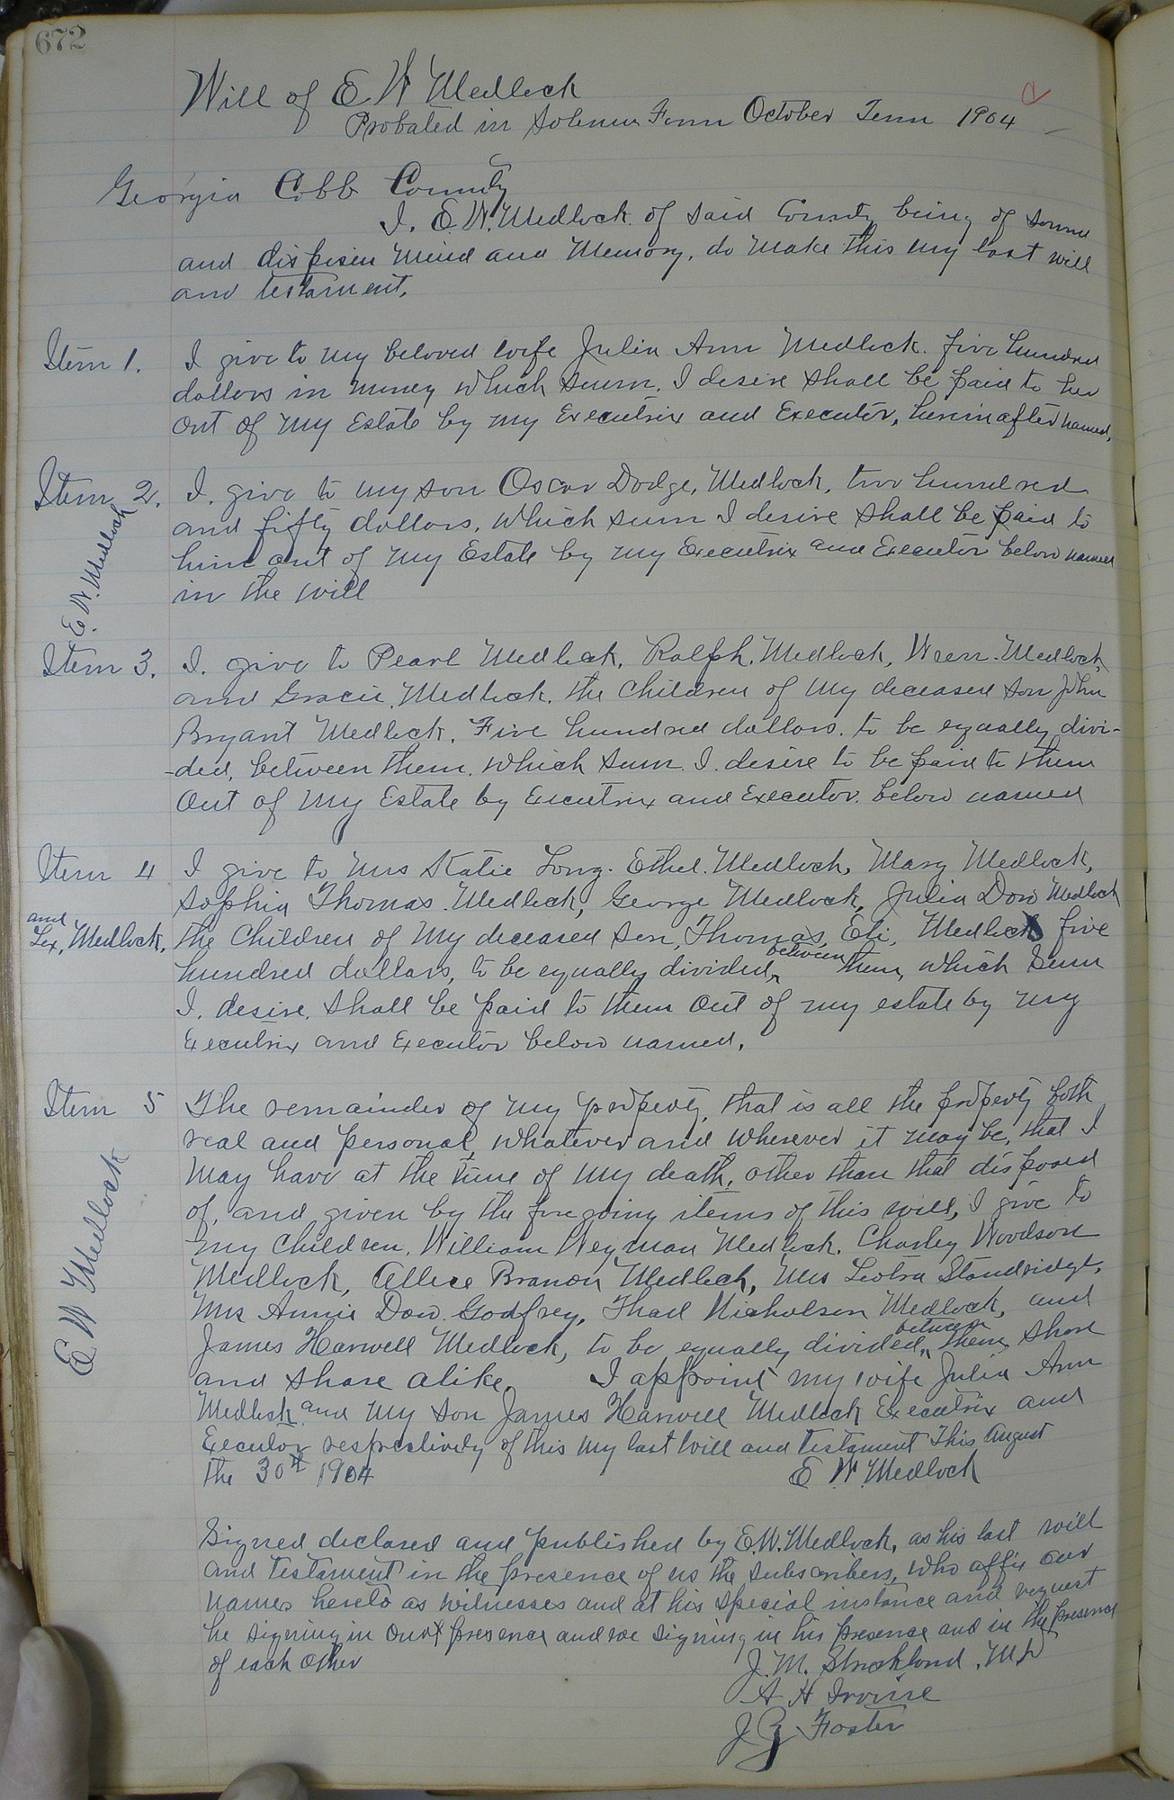 672
Will of E W Medlock
Probated in Solemn Form October Term 1904
Georgia Cobb County
I, E. W. Medlock of said County being of sound
and disposin mind and memory, do make this my last will
and testament.
Item 1. I give to my beloved wife Julia Ann Medlock. five hundred
dollars in money which sum, I desire shall be paid to her
out of my Estate by my Executrix and Executor, hereinafter named,
Item 2. I. give to my son Oscar Dodge, Medlock, two hundred
and fifty dollars, which sum I desire shall be paid to
him out of my Estate by my Executrix and Executor below named
in the will
E. W. Medlock
Item 3. I. give to Pearl Medlock, Ralph. Medlock, Wren. Medlock,
and Gracie Medlock. the Children of my deceased son John
Bryant Medlock. Five hundred dollars. to be equally divi-
-ded, between them. which sum I. desire to be paid to them
out of my Estate by Executrix and Executor. below named
Item 4 I give to Mrs Katie Long. Ethel. Medlock, Mary Medlock,
Sophia Thomas Medlock, George Medlock, Julia Dow Medlock
and Lex, Medlock, the Children of my deceased son, Thomas, Eli, Medlock five
hundred dollars, to be equally divided, between them, which sum
I. desire, shall be paid to them out of my estate by my
Executrix and Executor below named.
Item 5 The remainder of my property, that is all the property both
real and personal, whatever and wherever it may be, that I
may have at the time of my death, other than that disposed
of, and given by the foregoing items of this will, I give to
my Children, William Weyman Medlock. Charley Woodson
Medlock, Branon Medlock, Mrs Leotra Standridge,
Mrs Annie Dow Godfrey, Thad Nicholson Medlock, and
James Harwell Medlock, to be equally divided, between them, share
and share alike. I appoint my wife Julia Ann
Medlock and my son James Harwell Medlock Executrix and
Executor respectively of this my last will and testament This August
the 30th 1904 E. W. Medlock
E W Medlock
Signed declared and published by E. W. Medlock, as his last will
and testament in the presence of us the subscribers, who affix our
names hereto as witnesses and at his special instance and request
he signing in our presence and we signing in his presence and in the presence
of each other
J. M. Strickland. M D
A H Irvine
J G Foster